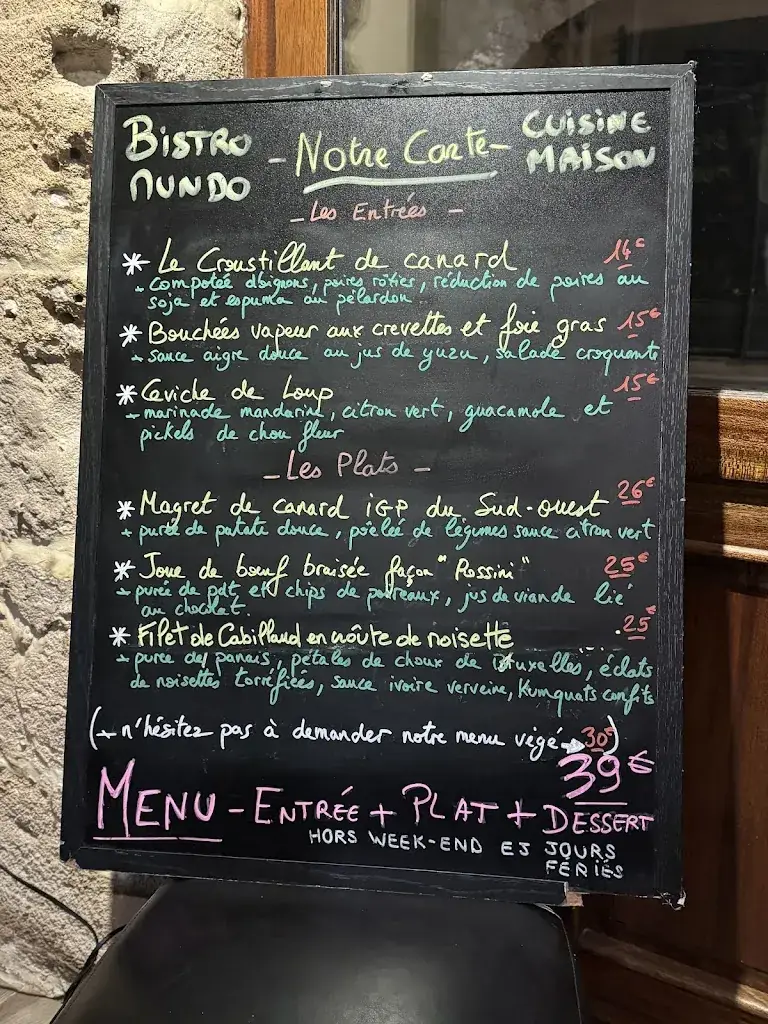 BISTRO
NUNDO
- Notre Carte -
CUISINE
MAISON
- Les Entrées -
* Le Croustillant de canard 14€
- compotée d'oignons, poires rôties, réduction de poires au
soja et espuma au pélardon
* Bouchées vapeur aux crevettes et foie gras 15€
- sauce aigre douce au jus de yuzu, salade croquante
* Ceviche de Loup 15€
- marinade mandarine, citron vert, guacamole et
pickels de chou fleur
- Les Plats -
* Magret de canard iGP du Sud-ouest 26€
- purée de patate douce, poêlée de légumes sauce citron vert
* Joue de bœuf braisée façon "Rossini" 25€
- purée de pdt et chips de poireaux, jus de viande lié
au chocolat.
* Filet de Cabillaud en croûte de noisette 25€
- purée de panais, pétales de choux de Bruxelles, éclats
de noisettes torréfiées, sauce ivoire verveine, Kumquats confits
(→ n'hésitez pas à demander notre menu végé → 30€)
39€
MENU - ENTRÉE + PLAT + DESSERT
HORS WEEK-END ET JOURS
FÉRIÉS